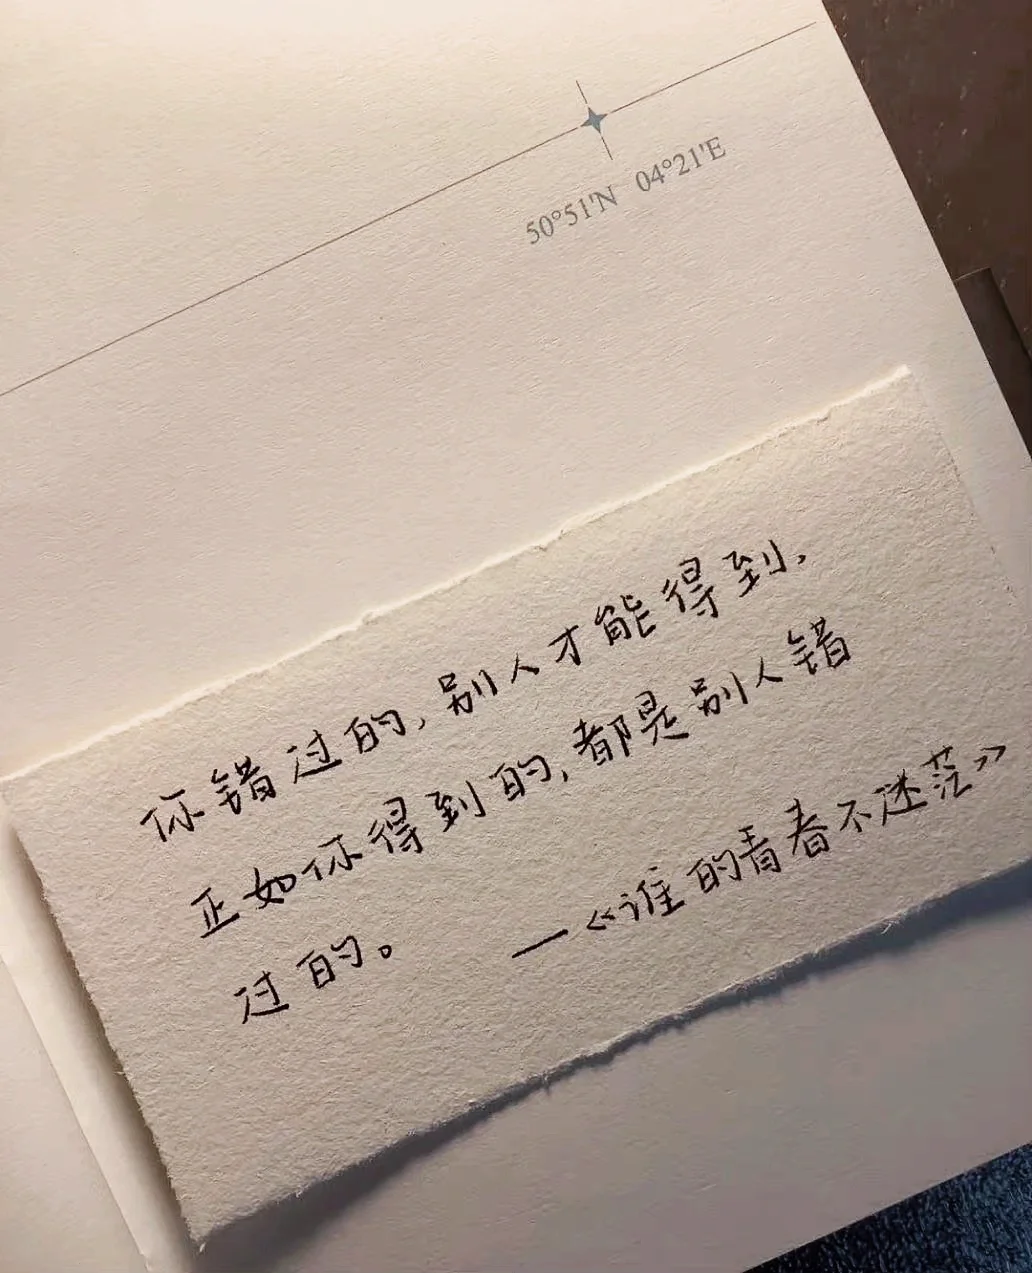 50°51'N 04°21'E
你错过的,别人才能得到,
正如你得到的,都是别人错
过的。 —《谁的青春不迷茫》